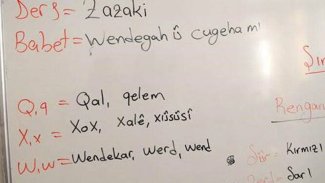 Ders = Zazaki
Babet = Wendegah û cugeha mı
Q,q = Qal, qelem
X,x = XoX, Xalê, xıûsûsî
W,w = Wendekar, Werd, wend
Rengan
Kırmızı
Sarı